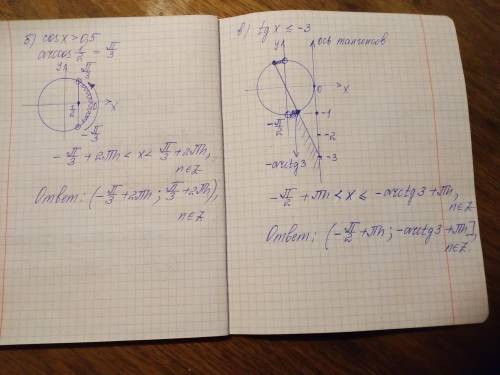 б) cos x > 0,5
arccos 1/2 = π/3
y
π/3
1/2
0
x
-π/3
-π/3 + 2πn < x < π/3 + 2πn,
n∈Z
Ответ: (-π/3 + 2πn ; π/3 + 2πn),
n∈Z
в) tg x ≤ -3
y
ось тангенсов
0
x
-1
-π/2
-2
-3
-arctg3
-π/2 + πn < x ≤ -arctg3 + πn,
n∈Z
Ответ: (-π/2 + πn ; -arctg3 + πn],
n∈Z